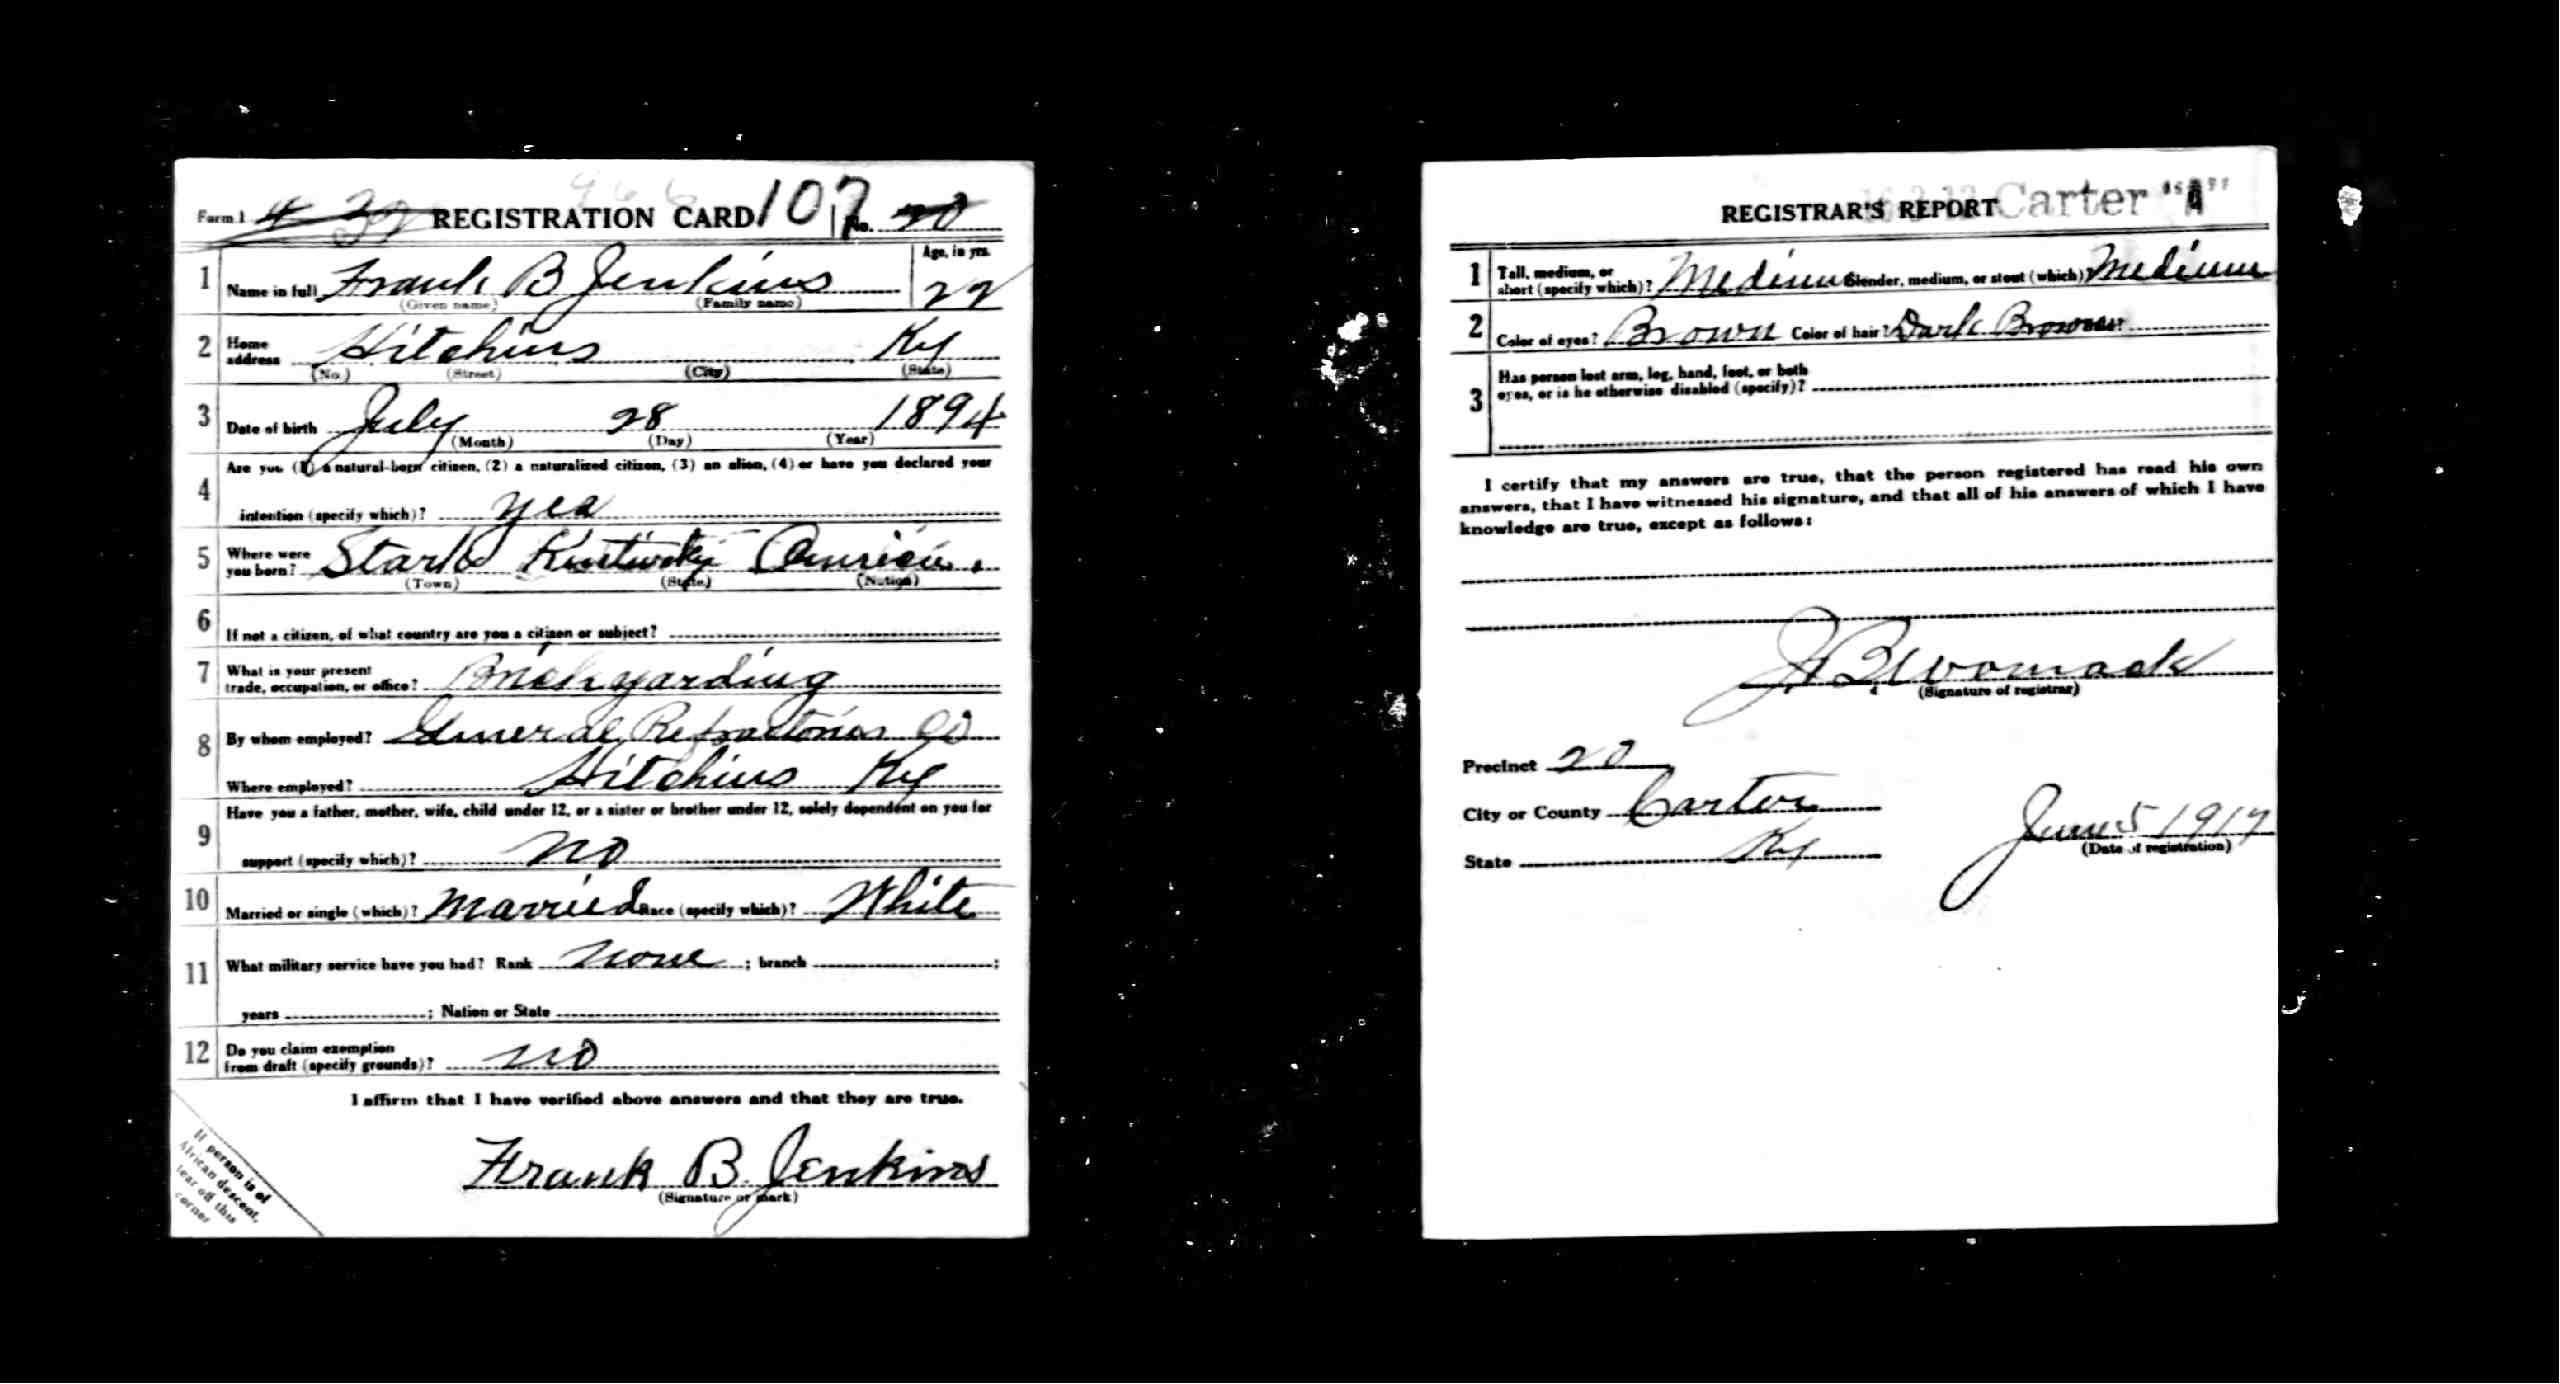 Form 1 REGISTRATION CARD 107 No. 20
1 Name in full Frank B Jenkins Age, in yrs. 22
(Given name) (Family name)
2 Home address Hitchins Ky
(No.) (Street) (City) (State)
3 Date of birth July 28 1894
(Month) (Day) (Year)
4 Are you (1) a natural-born citizen, (2) a naturalized citizen, (3) an alien, (4) or have you declared your
intention (specify which)? yes
5 Where were you born? Stark Kentucky
(Town) (State) (Nation)
6 If not a citizen, of what country are you a citizen or subject?
7 What is your present trade, occupation, or office? Brickyarding
8 By whom employed? General Refractories Co
Where employed? Hitchins Ky
9 Have you a father, mother, wife, child under 12, or a sister or brother under 12, solely dependent on you for
support (specify which)? no
10 Married or single (which)? Married Race (specify which)? White
11 What military service have you had? Rank none ; branch ;
years ; Nation or State
12 Do you claim exemption from draft (specify grounds)? no
I affirm that I have verified above answers and that they are true.
Frank B. Jenkins
(Signature or mark)
If person is of
African descent,
tear off this
corner
REGISTRAR'S REPORT Carter "A"
1 Tall, medium, or short (specify which)? Medium Slender, medium, or stout (which)? Medium
2 Color of eyes? Brown Color of hair? Dark Brown
3 Has person lost arm, leg, hand, foot, or both
eyes, or is he otherwise disabled (specify)?
I certify that my answers are true, that the person registered has read his own
answers, that I have witnessed his signature, and that all of his answers of which I have
knowledge are true, except as follows:
J B Womack
(Signature of registrar)
Precinct 20
City or County Carter
State Ky
June 5 1917
(Date of registration)